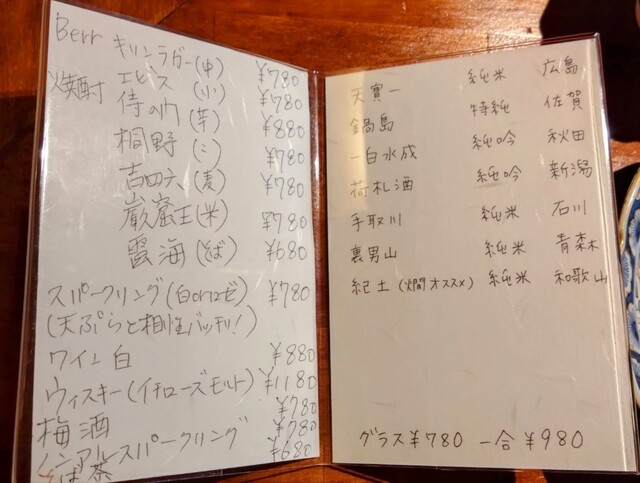 Berr キリンラガー(中) ¥780
エビス(小) ¥780
焼酎 侍の门(芋) ¥880
桐野(〃) ¥780
吉四六(麦) ¥780
巌窟王(米) ¥780
霞海(そば) ¥680
スパークリング(白orロゼ) ¥780
(天ぷらと相性バッチリ!)
ワイン白 ¥880
ウィスキー(イチローズモルト) ¥1180
梅酒 ¥780
ノンアルスパークリング ¥780
そば茶 ¥680
天寳一 純米 広島
鍋島 特純 佐賀
一白水成 純吟 秋田
荷札酒 純吟 新潟
手取川 純米 石川
裏男山 純米 青森
紀土(燗オススメ) 純米 和歌山
グラス¥780 一合¥980